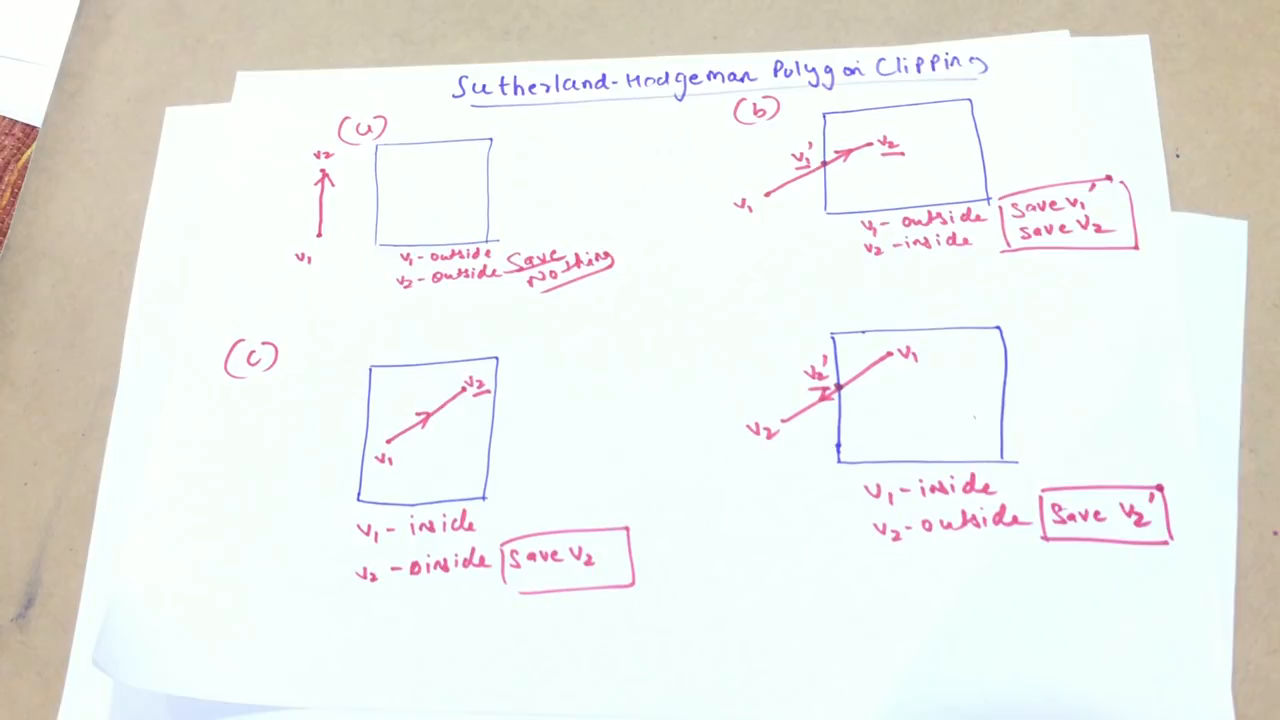 Sutherland-Hodgeman Polygon Clipping
(a)
V2
V1
V1- outside
V2- outside
Save
Nothing
(b)
V1'
V2
V1
V1- outside
V2 -inside
Save V1'
Save V2
(c)
V2
V1
V1- inside
V2 -inside
Save V2
V1
V2'
V2
V1-inside
V2-outside
Save V2'